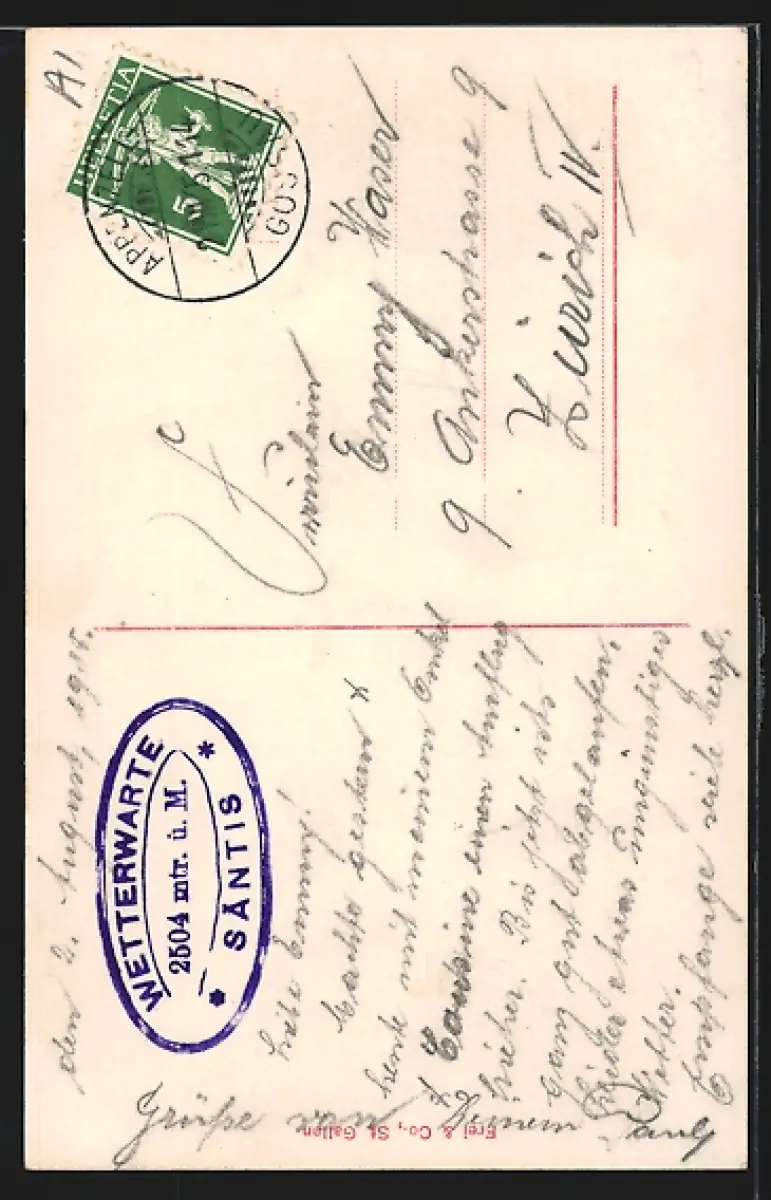 den 2. August, 1915.
WETTERWARTE
2504 mtr. ü. M.
* SÄNTIS *
Liebe Emmy!
Machte gestern &
heute mit meinem Onkel
& Cousine einen Ausflug
hieher. Bis jetzt ists
ganz gut abgelaufen,
leider etwas ungünstiges
Wetter.
Empfange viele herzl.
Grüße von Deinem Paul
Frei & Co., St. Gallen
A1
HELVETIA
5
APPENZELL
GOS
Fräulein
Emmy Kaser
9 Ankerstrasse 9
Zürich IV.